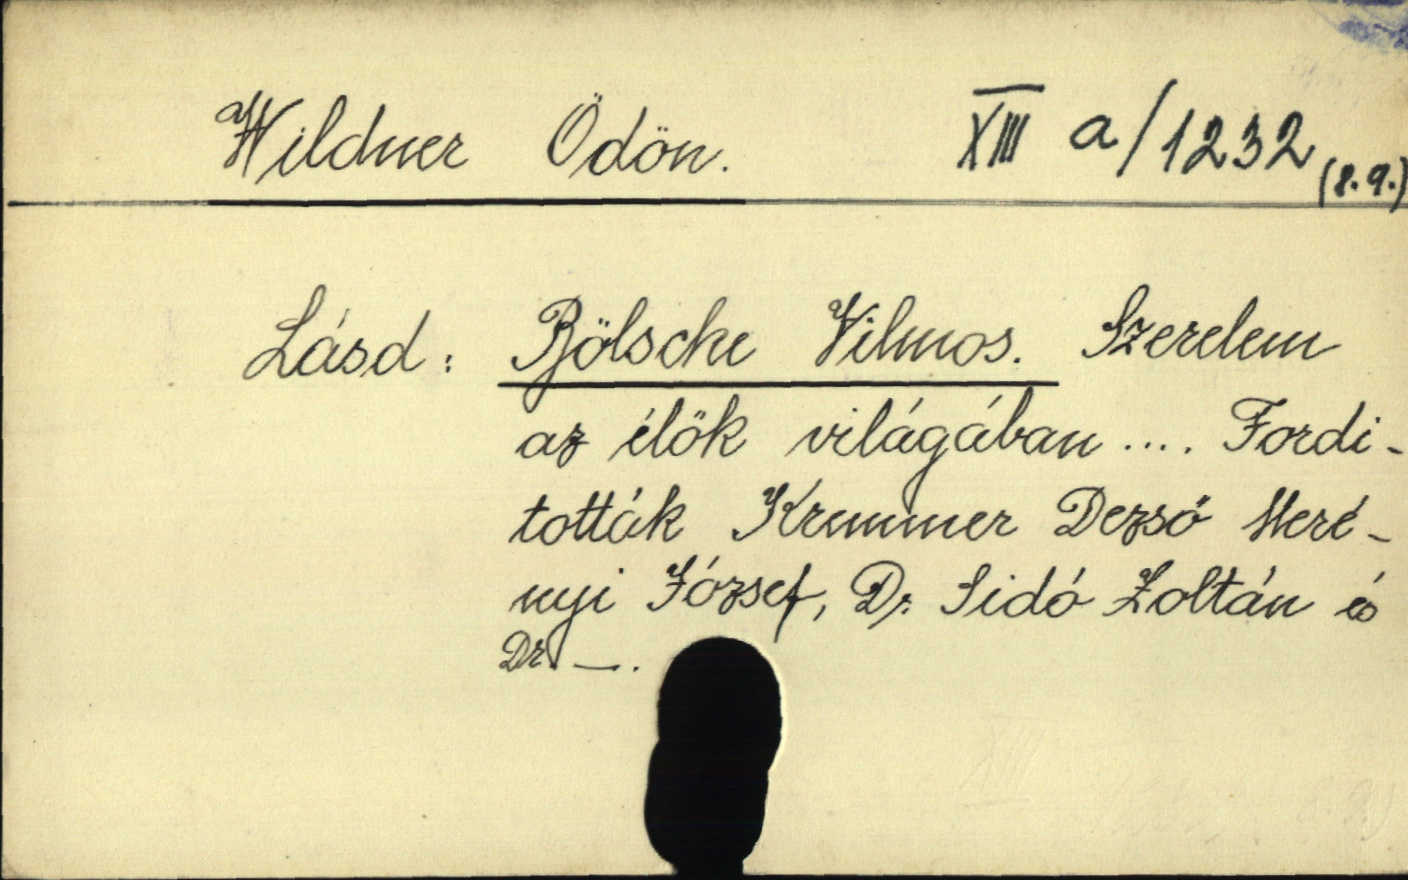 Wildner Ödön. XIII a/1232 (8.9.)
Lásd: Bölsche Vilmos. Szerelem
az élők világában .... Fordi-
tották Kremmer Dezső Meré-
nyi József, Dr. Sidó Zoltán és
Dr. —.